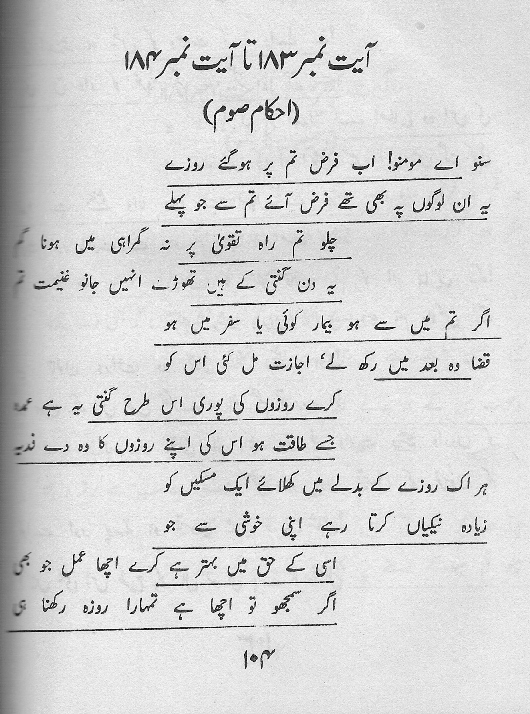 آیت نمبر ۱۸۳ تا آیت نمبر ۱۸۴
(احکام صوم)
سنو اے مومنو! اب فرض تم پر ہوگئے روزے
یہ ان لوگوں پہ بھی تھے فرض آئے تم سے جو پہلے
چلو تم راہ تقویٰ پر نہ گمراہی میں ہونا گم
یہ دن گنتی کے ہیں تھوڑے انہیں جانو غنیمت تم
اگر تم میں سے ہو بیمار کوئی یا سفر میں ہو
قضا وہ بعد میں رکھ لے، اجازت مل گئی اس کو
کرے روزوں کی پوری اس طرح گنتی یہ ہے عمدہ
جسے طاقت ہو اس کی اپنے روزوں کا وہ دے فدیہ
ہر اک روزے کے بدلے میں کھلائے ایک مسکیں کو
زیادہ نیکیاں کرتا رہے اپنی خوشی سے جو
اسی کے حق میں بہتر ہے کرے اچھا عمل جو بھی
اگر سمجھو تو اچھا ہے تمہارا روزہ رکھنا ہی
۱۰۴